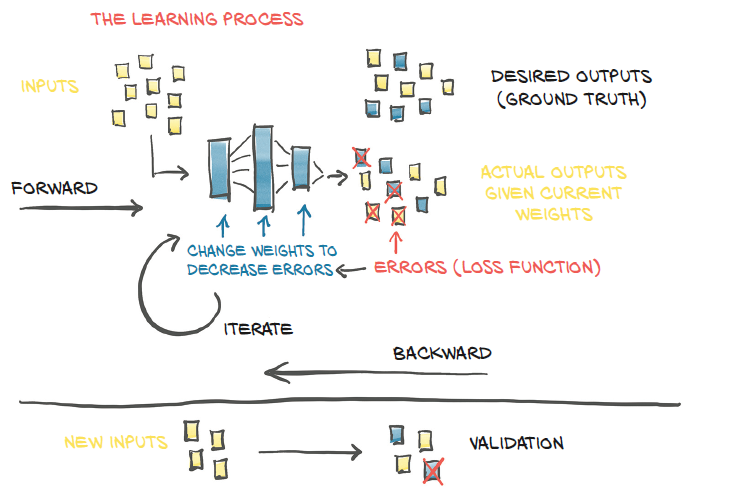 THE LEARNING PROCESS
INPUTS
DESIRED OUTPUTS
(GROUND TRUTH)
ACTUAL OUTPUTS
GIVEN CURRENT
WEIGHTS
FORWARD
CHANGE WEIGHTS TO
DECREASE ERRORS
ERRORS (LOSS FUNCTION)
ITERATE
BACKWARD
NEW INPUTS
VALIDATION